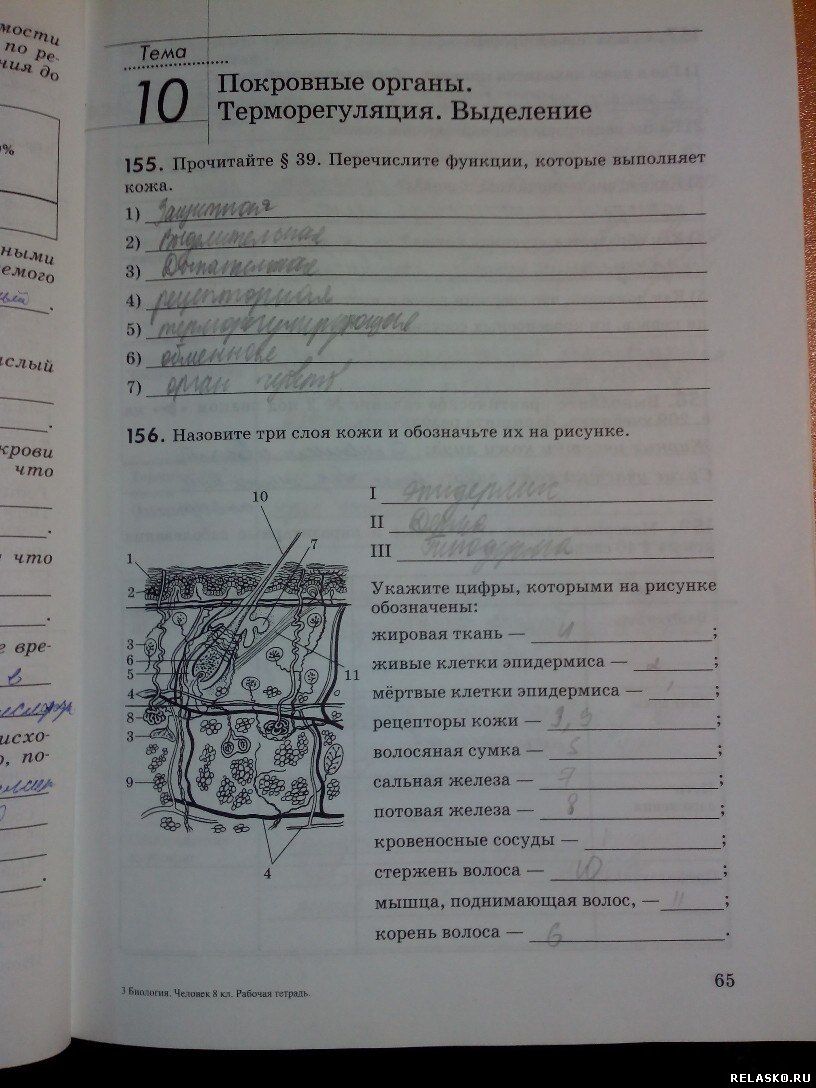 мости
по ре-
ния до
%
ными
емого
ный.
ислый
крови
что
и что
е вре-
в
исхо-
о, по-
Тема
10
Покровные органы.
Терморегуляция. Выделение
155. Прочитайте § 39. Перечислите функции, которые выполняет
кожа.
1) Защитная
2) выделительная
3) Дыхательная
4) рецепторная
5) терморегулирующая
6) обменное
7) орган чувств
156. Назовите три слоя кожи и обозначьте их на рисунке.
I Эпидермис
II Дерма
III Гиподерма
10
7
1
2
3
6
5
4
8
3
9
11
4
Укажите цифры, которыми на рисунке
обозначены:
жировая ткань — ;
живые клетки эпидермиса — 2 ;
мёртвые клетки эпидермиса — 1 ;
рецепторы кожи — 3 ;
волосяная сумка — 5 ;
сальная железа — 7 ;
потовая железа — 8 ;
кровеносные сосуды — ;
стержень волоса — 10 ;
мышца, поднимающая волос, — 11 ;
корень волоса — 6 .
3 Биология. Человек 8 кл. Рабочая тетрадь.
65
RELASKO.RU